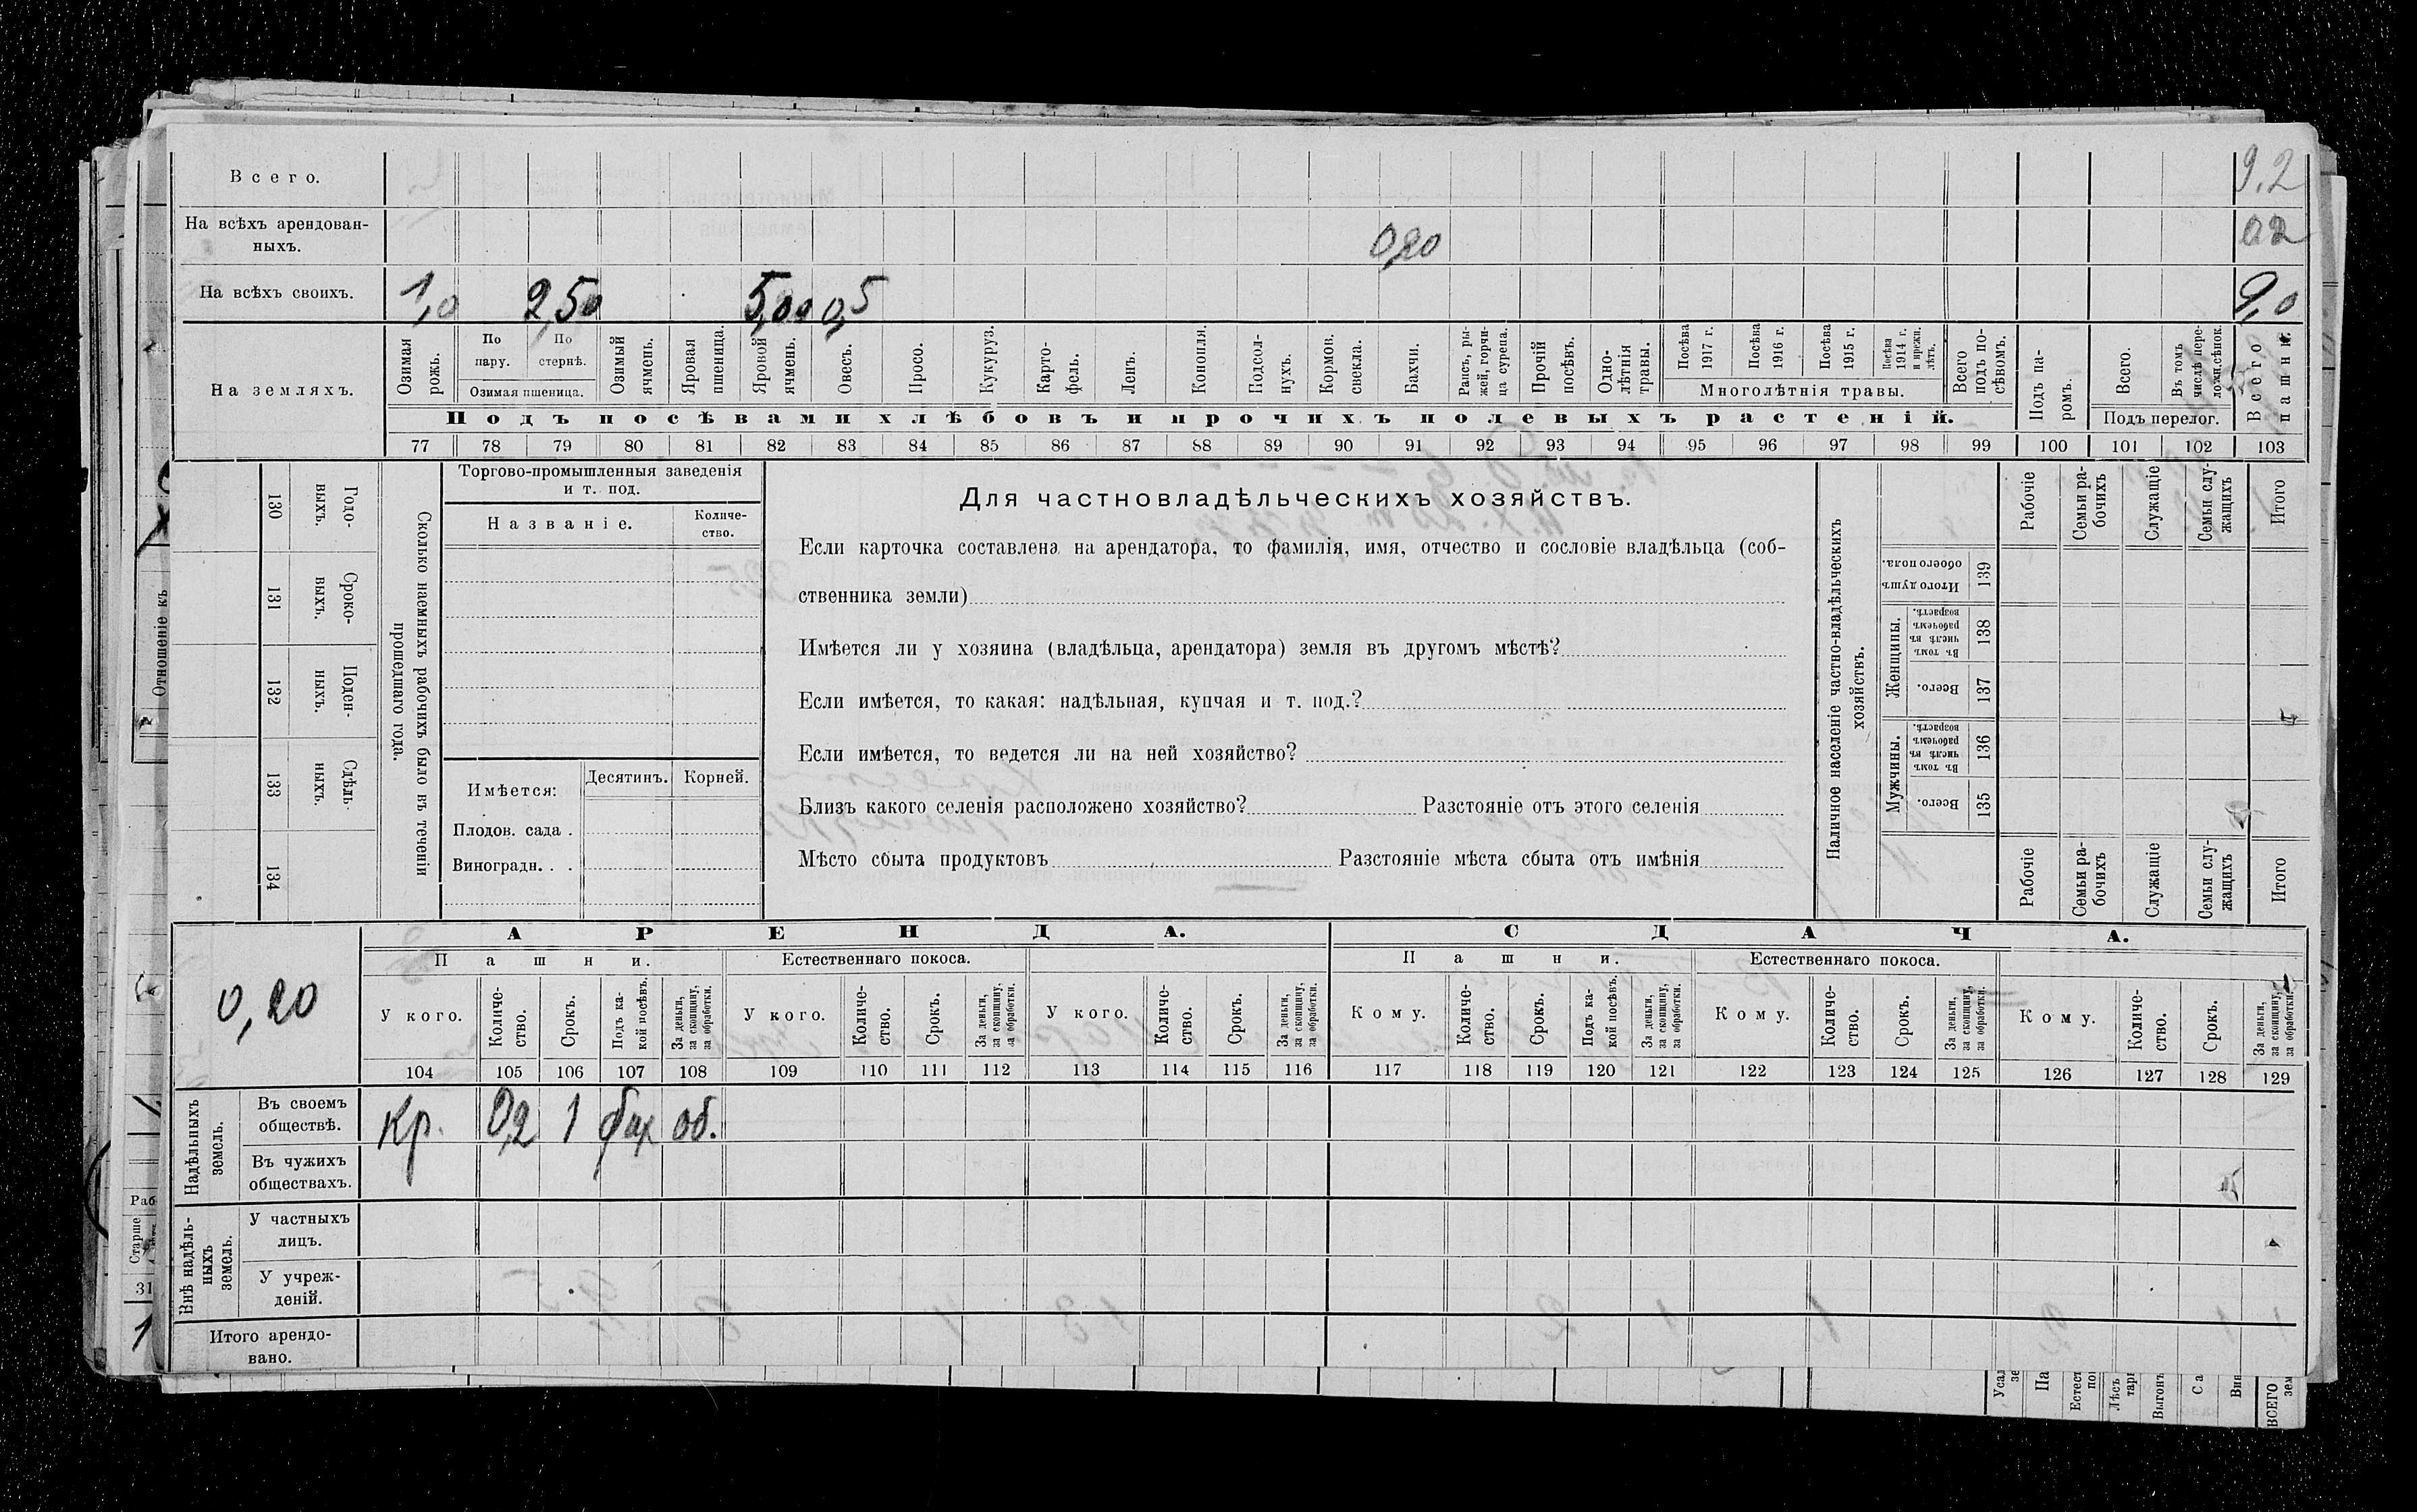 Всего. 9.2
На всѣхъ арендован-
ныхъ. 0,20 0.2
На всѣхъ своихъ. 1,0 2,50 5,00 0,5 9,0
На земляхъ.
Озимая рожь.
По пару.
По стернѣ.
Озимая пшеница.
Озимый ячмень.
Яровая пшеница.
Яровой ячмень.
Овесъ.
Просо.
Кукуруз.
Карто-
фель.
Ленъ.
Конопля.
Подсол-
нухъ.
Кормов.
свекла.
Бахчи.
Рапсъ, ры-
жей, горчи-
ца сурепа.
Прочій
посѣвъ.
Одно-
лѣтнія
травы.
Посѣва
1917 г.
Посѣва
1916 г.
Посѣва
1915 г.
Посѣва
1914 г.
и прежн.
лѣтъ.
Многолѣтнія травы.
Всего
подъ по-
сѣвомъ.
Подъ па-
ромъ.
Всего.
Въ томъ
числѣ пере-
ложн.сѣнок.
Подъ перелог.
Всего
пашни.
Подъ посѣвами хлѣбовъ и прочихъ полевыхъ растеній.
77 78 79 80 81 82 83 84 85 86 87 88 89 90 91 92 93 94 95 96 97 98 99 100 101 102 103
130 Годо-
выхъ.
131 Сроко-
выхъ.
132 Поден-
ныхъ.
133 Сдѣль-
ныхъ.
134
Сколько наемныхъ рабочихъ было въ теченіи
прошедшаго года.
Торгово-промышленныя заведенія
и т. под.
Названіе.
Количе-
ство.
Имѣется: Десятинъ. Корней.
Плодов. сада .
Виноградн. . .
Для частновладѣльческихъ хозяйствъ.
Если карточка составлена на арендатора, то фамилія, имя, отчество и сословіе владѣльца (соб-
ственника земли)
Имѣется ли у хозяина (владѣльца, арендатора) земля въ другомъ мѣстѣ?
Если имѣется, то какая: надѣльная, купчая и т. под.?
Если имѣется, то ведется ли на ней хозяйство?
Близъ какого селенія расположено хозяйство? Разстояніе отъ этого селенія
Мѣсто сбыта продуктовъ Разстояніе мѣста сбыта отъ имѣнія
Наличное населеніе частно-владѣльческихъ
хозяйствъ.
Рабочіе
Семьи ра-
бочихъ
Служащіе
Семьи слу-
жащихъ
Итого
Итого душъ
обоего пола.
139
Женщины.
Въ томъ
числѣ въ
рабочемъ
возрастѣ.
138
Всего.
137
Мужчины.
Въ томъ
числѣ въ
рабочемъ
возрастѣ.
136
Всего.
135
Рабочіе
Семьи ра-
бочихъ
Служащіе
Семьи слу-
жащихъ
Итого
0,20
АРЕНДА. СДАЧА.
Пашни. Естественнаго покоса. Пашни. Естественнаго покоса.
У кого.
Количе-
ство.
Срокъ.
Подъ ка-
кой посѣвъ.
За деньги,
за скопщину,
за обработки.
У кого.
Количе-
ство.
Срокъ.
За деньги,
за скопщину,
за обработки.
У кого.
Количе-
ство.
Срокъ.
За деньги,
за скопщину,
за обработки.
Кому.
Количе-
ство.
Срокъ.
Подъ ка-
кой посѣвъ.
За деньги,
за скопщину,
за обработки.
Кому.
Количе-
ство.
Срокъ.
За деньги,
за скопщину,
за обработки.
Кому.
Количе-
ство.
Срокъ.
За деньги,
за скопщину,
за обработки.
104 105 106 107 108 109 110 111 112 113 114 115 116 117 118 119 120 121 122 123 124 125 126 127 128 129
Надѣльныхъ
земель.
Въ своемъ
обществѣ. Кр. 0,2 1 бах об.
Въ чужихъ
обществахъ.
Внѣ надѣль-
ныхъ
земель.
У частныхъ
лицъ.
У учреж-
деній.
Итого арендо-
вано.
Отношеніе къ
Раб
Старше
31
1
ВСЕГО